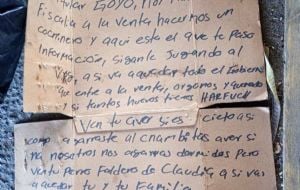 GOYO, Mor
Fiscalia a la venta hacemos un
cocinero y aqui esta el que te Paso
Información, siganle Jugando al
Vivo, asi va aquedar todo el Gobierno
que ente a la venta, organos y
y si tantos huevos tienes HARFUCH
Ven tu aver si es cierto asi
como agarraste al chambitas aver si
na nosotros nos agarras dormidos Pero
ven tu Perro Faldero de Claudia, asi vas
a quedar tu y tu Familia